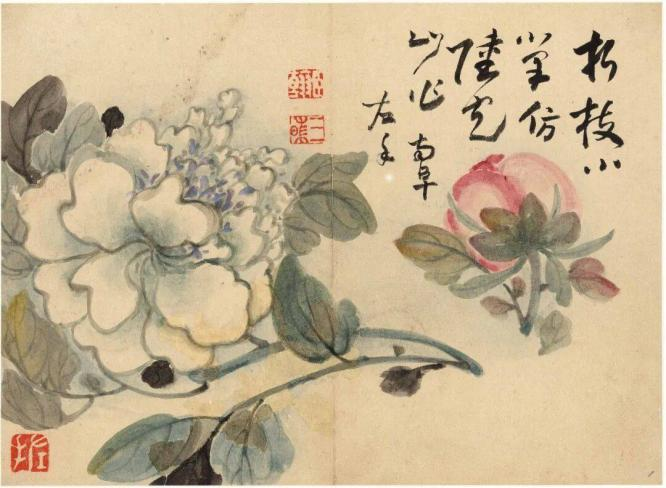 折枝小
筆仿
陸包
山作
南阜
左手